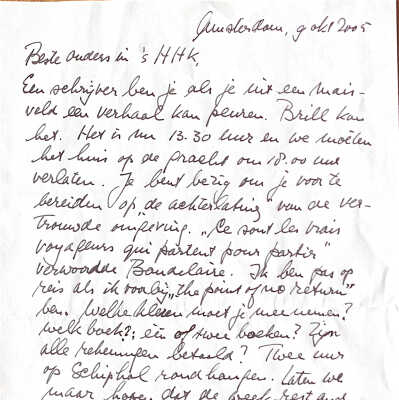 Amsterdam, 9 okt 2005
Beste ouders in 's HHK,
Een schrijver ben je als je uit een mais-
veld een verhaal kan peuren. Brill kan
het. Het is nu 13.30 uur en we moëten
het huis op de gracht om 18.00 uur
verlaten. Je bent bezig om je voor te
bereiden op „de achterlating" van de ver-
trouwde omgeving. „Ce sont les vrais
voyageurs qui partent pour partir"
verwoordde Baudelaire. Ik ben pas op
reis als ik voorbij „the point of no return"
ben. Welke kleren moet je meenemen?
welk boek?; één of twee boeken? Zijn
alle rekeningen betaald? Twee uur
op Schiphol rondhangen. Laten we
maar hopen dat de